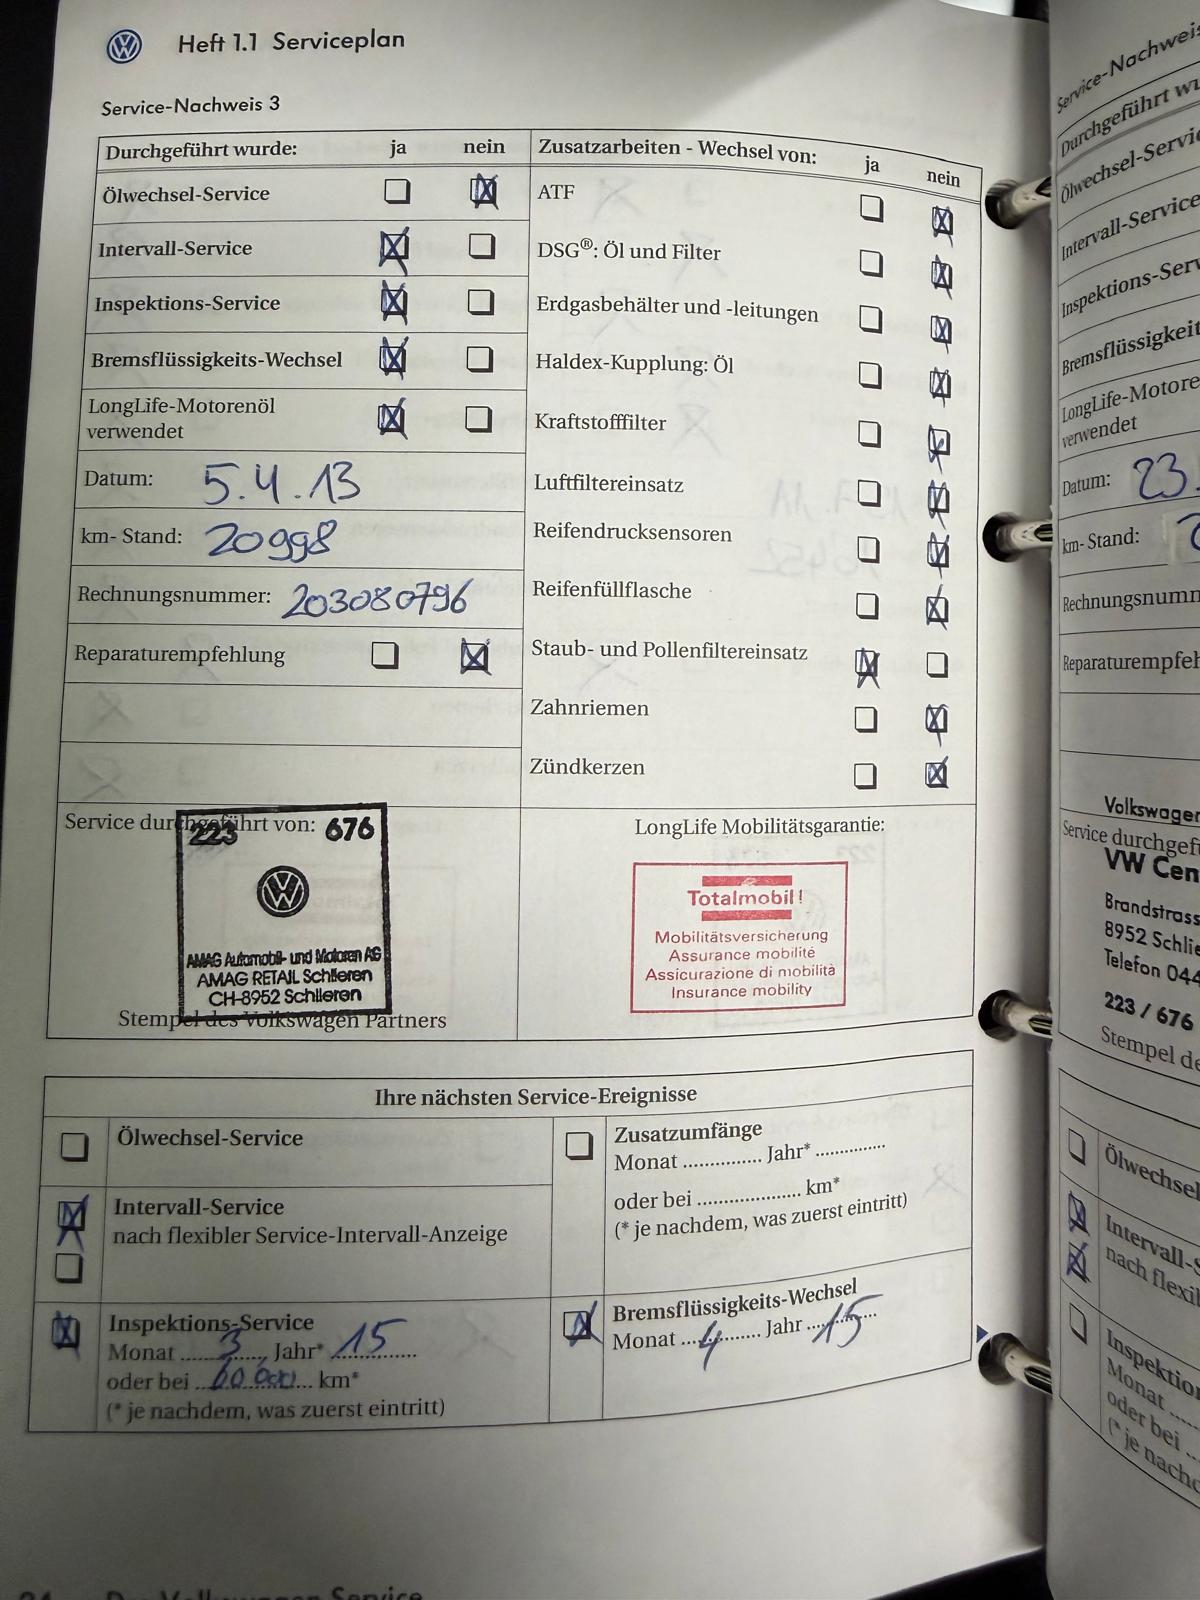 Heft 1.1 Serviceplan
Service-Nachweis 3
Durchgeführt wurde: ja nein
Ölwechsel-Service
Intervall-Service
Inspektions-Service
Bremsflüssigkeits-Wechsel
LongLife-Motorenöl
verwendet
Datum: 5.4.13
km- Stand: 20998
Rechnungsnummer: 203080796
Reparaturempfehlung
Zusatzarbeiten - Wechsel von: ja nein
ATF
DSG®: Öl und Filter
Erdgasbehälter und -leitungen
Haldex-Kupplung: Öl
Kraftstofffilter
Luftfiltereinsatz
Reifendrucksensoren
Reifenfüllflasche
Staub- und Pollenfiltereinsatz
Zahnriemen
Zündkerzen
Service durchgeführt von:
223 676
AMAG Automobil- und Motoren AG
AMAG RETAIL Schlieren
CH-8952 Schlieren
Stempel des Volkswagen Partners
LongLife Mobilitätsgarantie:
Totalmobil!
Mobilitätsversicherung
Assurance mobilité
Assicurazione di mobilità
Insurance mobility
Ihre nächsten Service-Ereignisse
Ölwechsel-Service
Intervall-Service
nach flexibler Service-Intervall-Anzeige
Inspektions-Service
Monat ...3..., Jahr* 15
oder bei ... km*
(* je nachdem, was zuerst eintritt)
Zusatzumfänge
Monat .............. Jahr* .............
oder bei .................... km*
(* je nachdem, was zuerst eintritt)
Bremsflüssigkeits-Wechsel
Monat ...4... Jahr ...15...
Service-Nachweis
Durchgeführt wu
Ölwechsel-Servi
Intervall-Service
Inspektions-Serv
Bremsflüssigkeit
LongLife-Motore
verwendet
Datum: 23.
km- Stand:
Rechnungsnumm
Reparaturempfeh
Volkswagen
Service durchgef
VW Cen
Brandstrass
8952 Schlie
Telefon 044
223 / 676
Stempel de
Ölwechsel
Intervall-S
nach flexi
Inspektion
Monat ....
oder bei ..
(* je nach